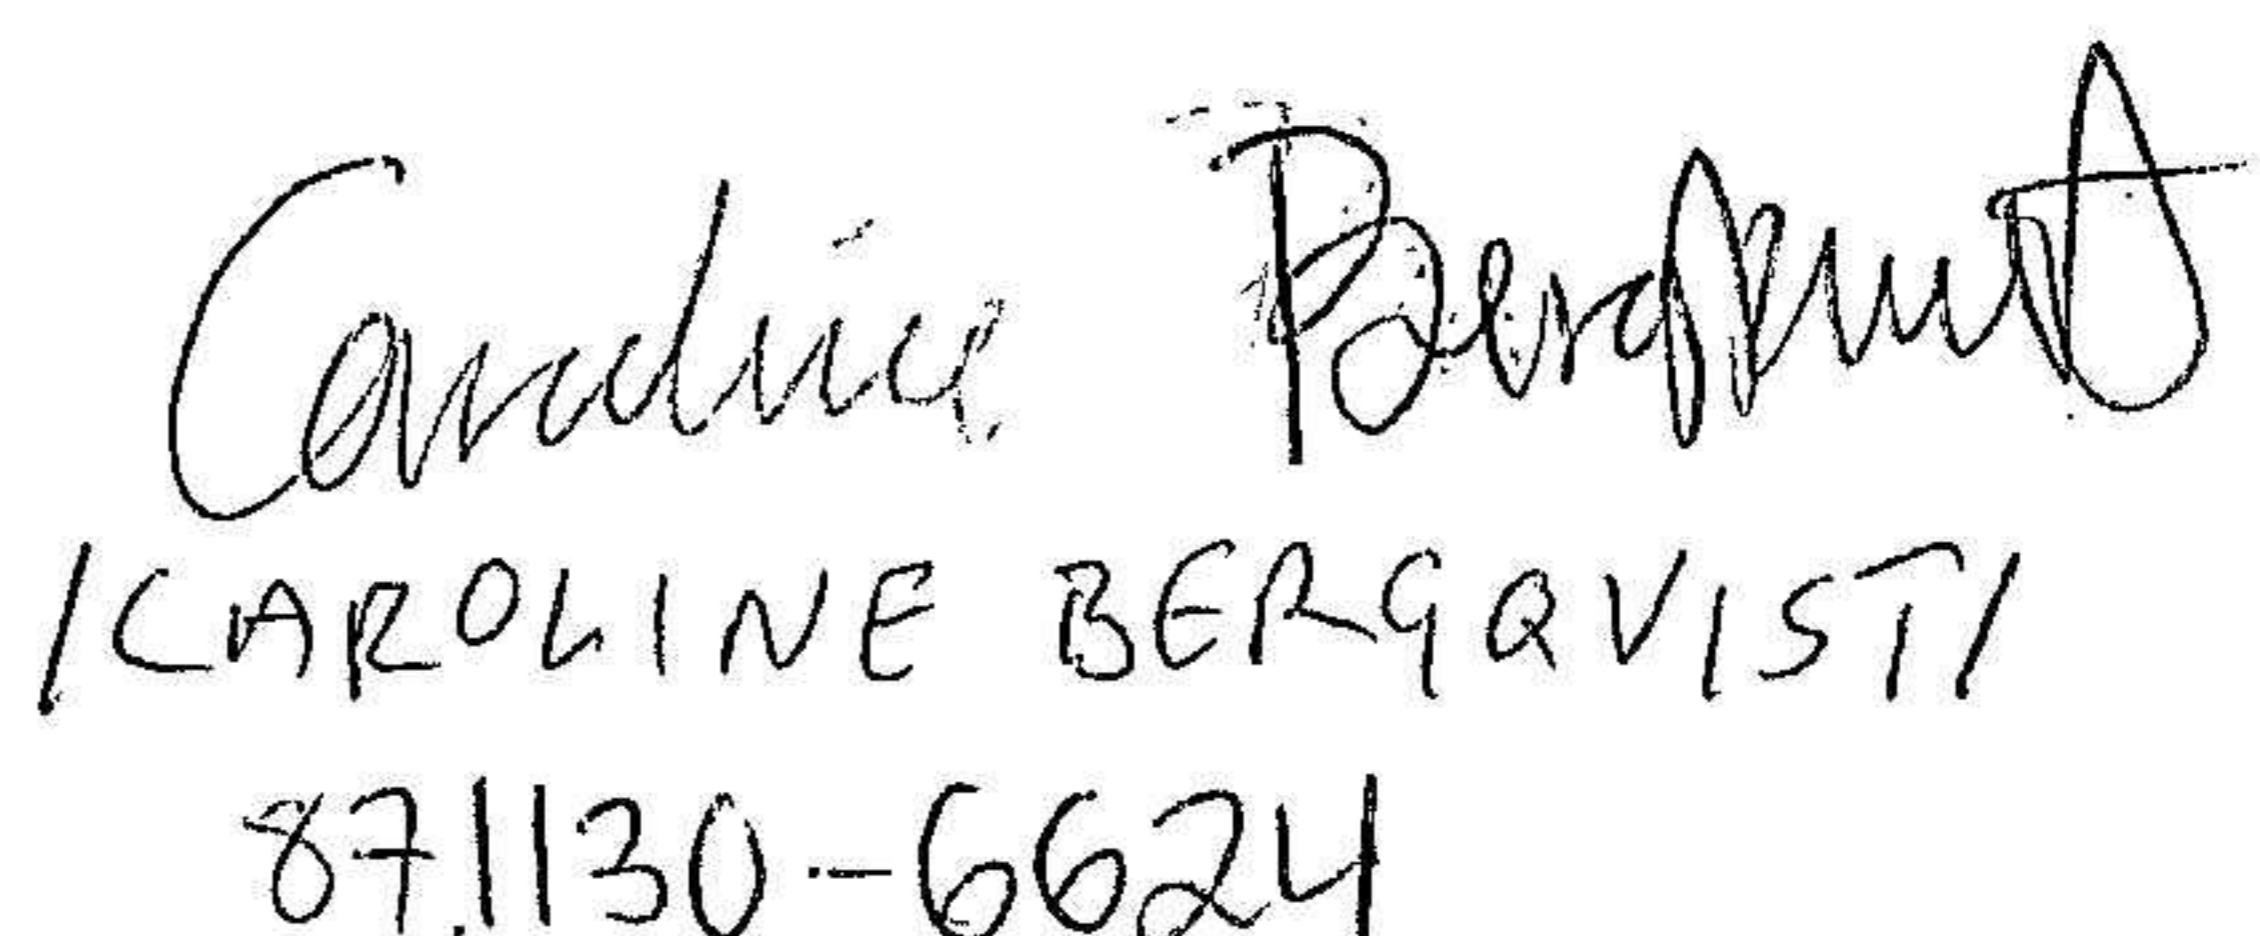 Caroline Bergqvist
/CAROLINE BERGQVIST/
871130-6624